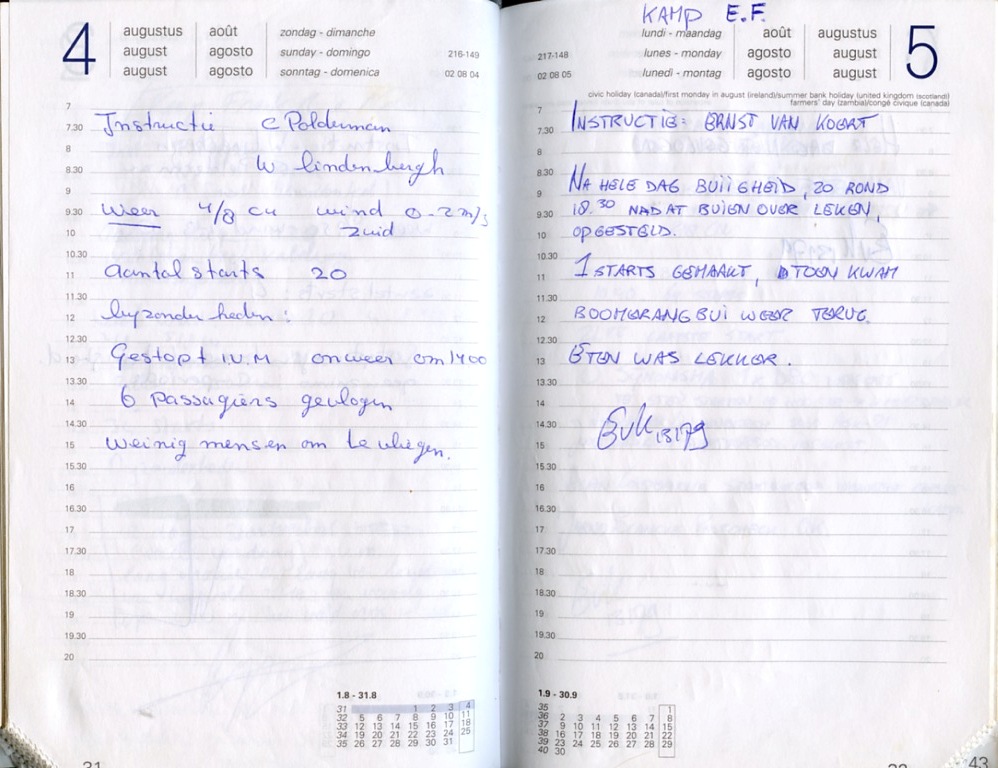 4
augustus août zondag - dimanche
august agosto sunday - domingo 216-149
august agosto sonntag - domenica 02 08 04
7
7.30 Instructie C Polderman
8
8.30 W lindenbergh
9
9.30 weer 4/8 cu wind 0-2 m/s
10 zuid
10.30
11 aantal starts 20
11.30
12 byzonderheden:
12.30
13 Gestopt I.V.M onweer om 1400
13.30
14 6 Passagiers gevlogen
14.30
15 weinig mensen om te vliegen.
15.30
16
16.30
17
17.30
18
18.30
19
19.30
20
1.8 - 31.8
31 1 2 3 4
32 5 6 7 8 9 10 11
33 12 13 14 15 16 17 18
34 19 20 21 22 23 24 25
35 26 27 28 29 30 31
KAMP E.F.
lundi - maandag août augustus
217-148 lunes - monday agosto august
02 08 05 lunedi - montag agosto august
5
civic holiday (canada)/first monday in august (ireland)/summer bank holiday (united kingdom (scotland)/
farmers' day (zambia)/congé civique (canada)
7
7.30 INSTRUCTIE: ERNST VAN KOERT
8
8.30
9 NA HELE DAG BUIIGHEID, ZO ROND
9.30 18.30 NADAT BUIEN OVER LEKEN,
10 OPGESTELD.
10.30
11 1 STARTS GEMAAKT, TOEN KWAM
11.30
12 BOOMERANG BUI WEER TERUG.
12.30
13 ETEN WAS LEKKER.
13.30
14
14.30
15
15.30
16
16.30
17
17.30
18
18.30
19
19.30
20
1.9 - 30.9
35 1
36 2 3 4 5 6 7 8
37 9 10 11 12 13 14 15
38 16 17 18 19 20 21 22
39 23 24 25 26 27 28 29
40 30
43